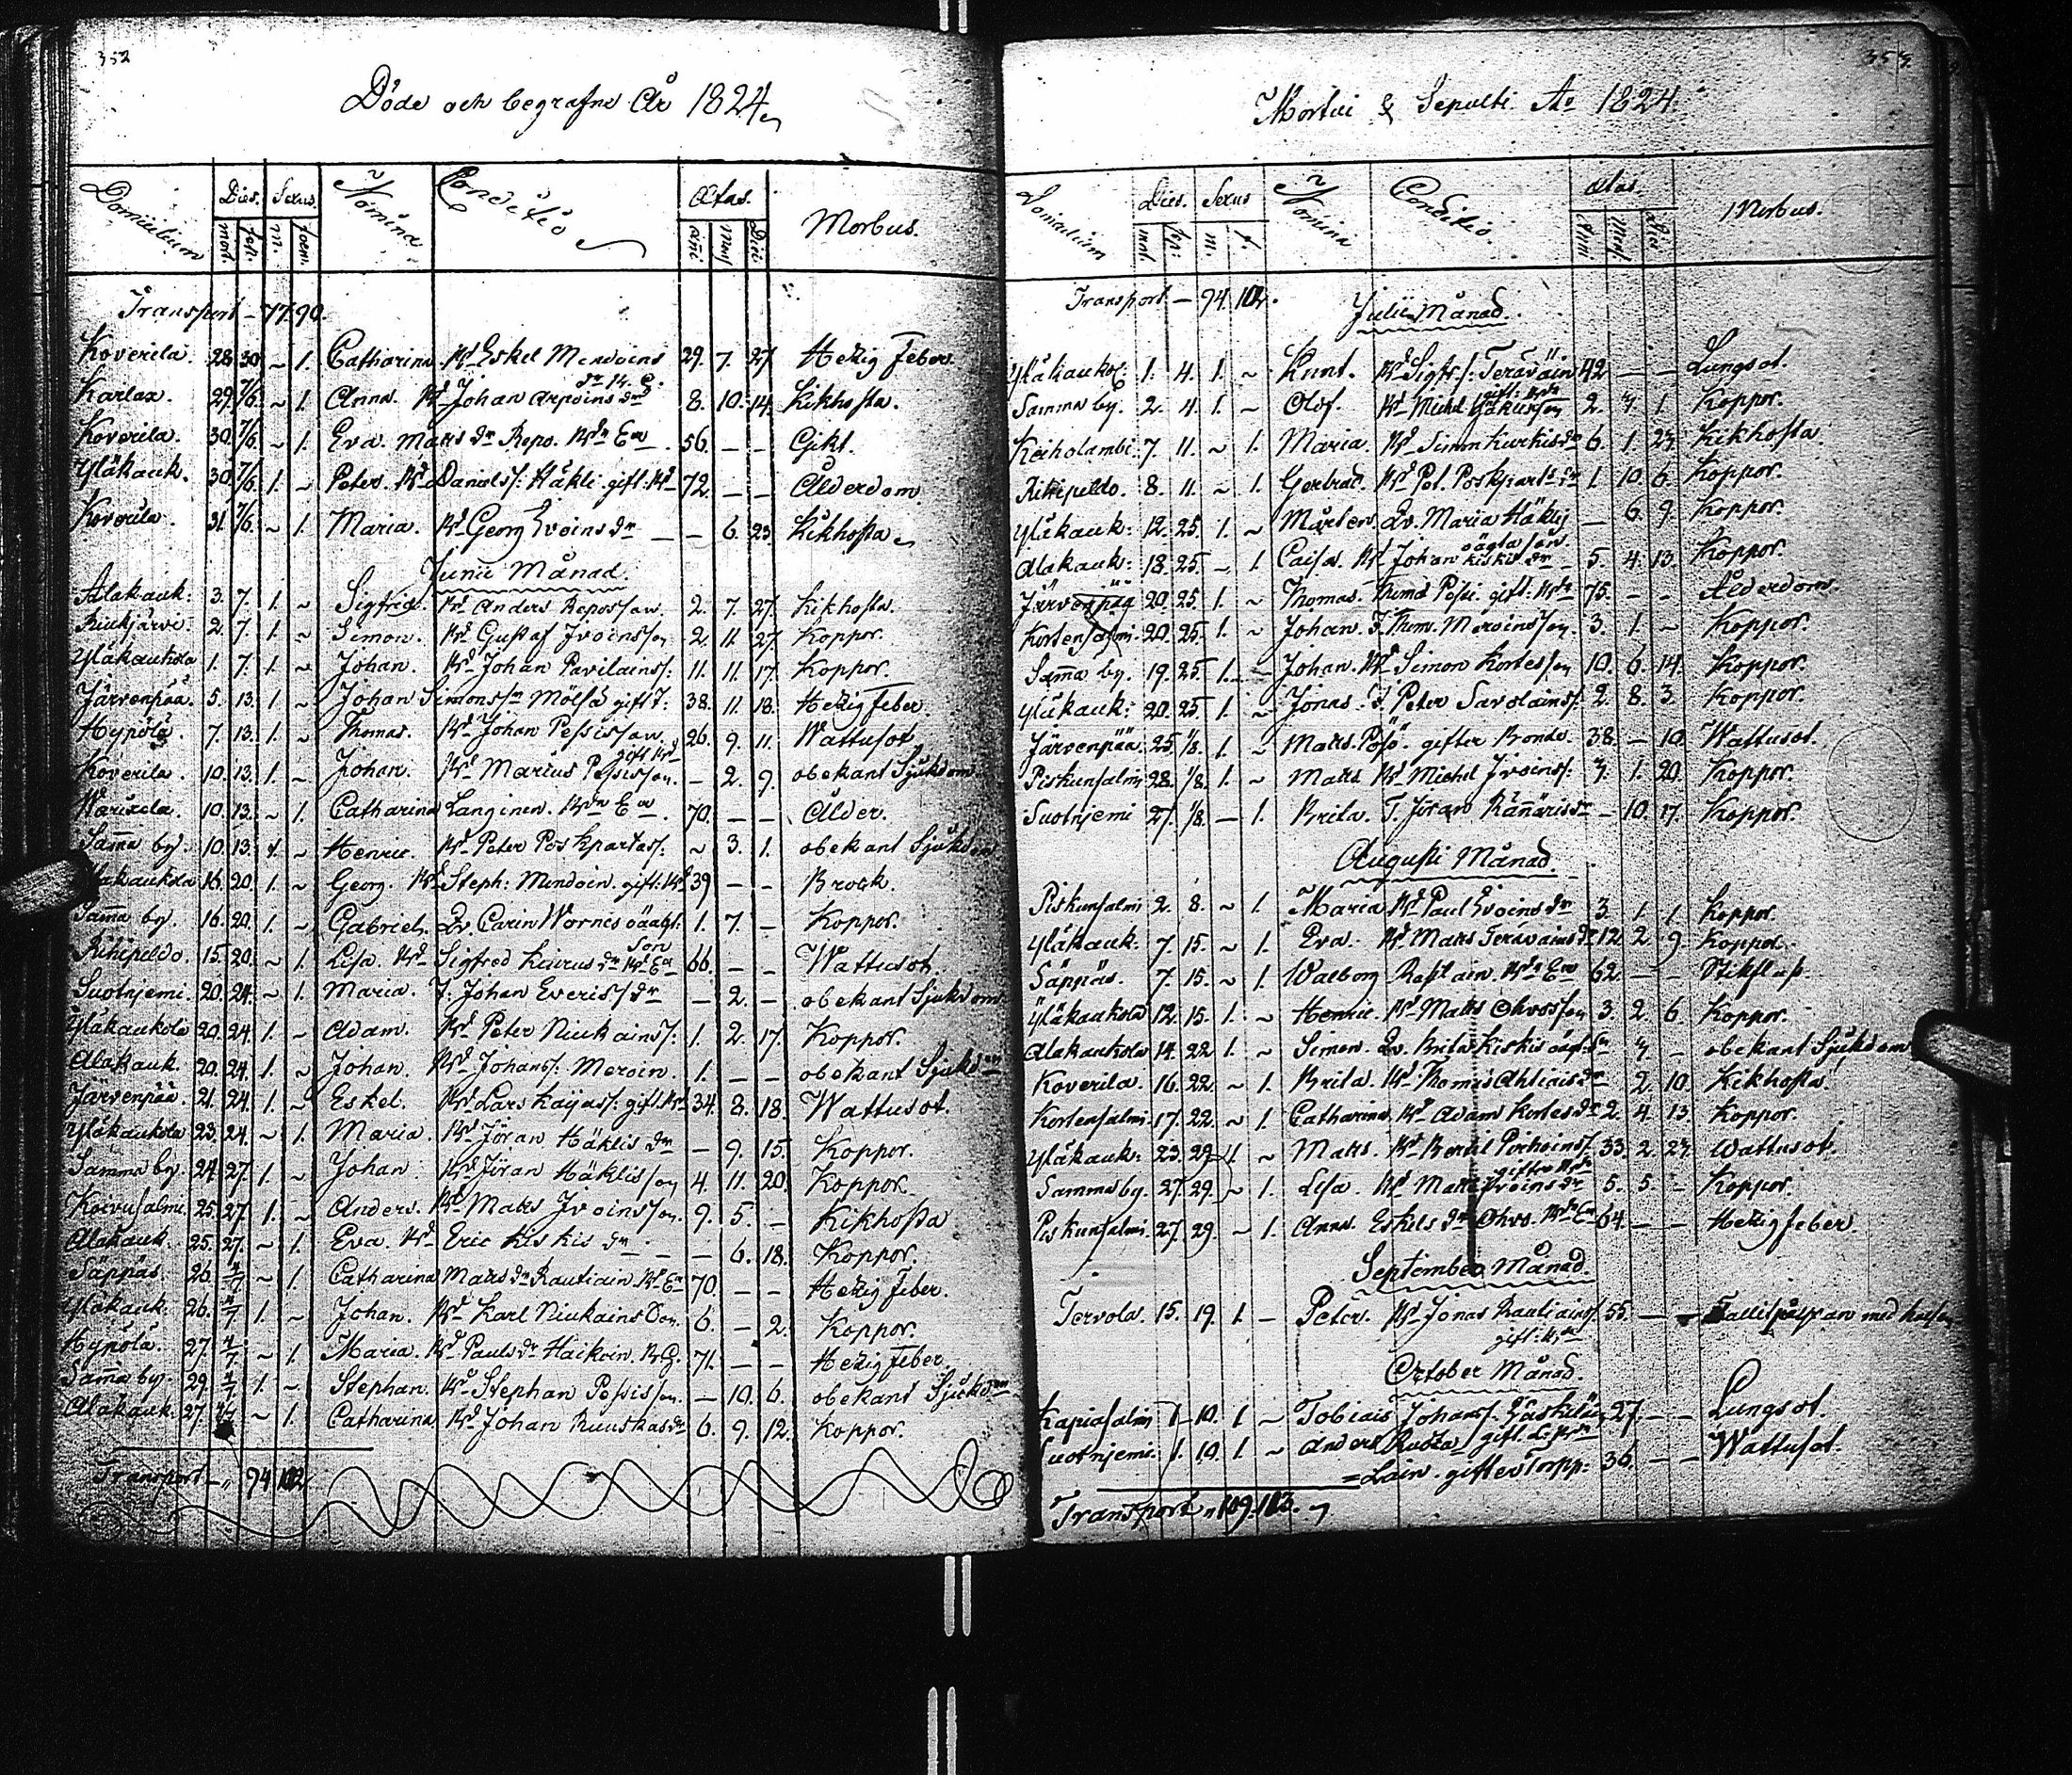 352
Döde och begrafne År 1824
Domicilium Dies. Sexus. Nomina Conditio Ætas. Morbus.
mort. sep. m. foem. Añi Mens Diei
Transport - 77. 90.
Koverila. 28. 30. ~ 1. Catharina Bd Eskel Mendoins 29. 7. 27. Hetzig Feber.
dr 14. C.
Karlax. 29. 7/6. ~ 1. Anna. Bd Johan Arpoins dr 8. 10. 14. Kikhosta.
Koverila. 30. 7/6. ~ 1. Eva. Matts dr Repo. Bde Ea. 56. - - Gikt.
Yläkauk. 30. 7/6. 1. ~ Peter. Bd Daniels/: Häkli. gift: Bd 72. - - Ålderdom
Koverila. 31. 7/6. ~ 1. Maria. Bd Georg Ivoins dr - 6. 23. Kikhosta
Junii Månad.
Alakauk: 3. 7. 1. ~ Sigfrid. Bd Anders Repos son 2. 7. 27. Kikhosta.
Kuukjärvi. 2. 7. 1. ~ Simon. Bd Gustaf Ivoinsson 2. 11. 27. Koppor.
Yläkaukola 1. 7. 1. ~ Johan. Bd Johan Pavilains/: 11. 11. 17. Koppor.
Järvenpää. 5. 13. 1. ~ Johan Simonss Mölsä gift T: 38. 11. 18. Hetzig Feber.
Hypölä. 7. 13. 1. ~ Thomas. Bd Johan Pessisson 26. 9. 11. Wattusot
gift Bd
Koverila. 10. 13. 1. ~ Johan. Bd Marius Pessisson. - 2. 9. obekant Sjukdom
10. 13. ~ 1. Catharina Langinen. Bde Ea. 70. - - Ålder.
Sama by. 10. 13. 1. ~ Henric. Bd Peter Poskpartas/: ~ 3. 1. obekant Sjukdom
16. 20. 1. ~ Georg. Bd Steph: Mendoin. gift: Bd 39 - - Brock.
Sama by. 16. 20. 1. ~ Gabriel. Qv. Carin Wornis oäagt. 1. 7. - Koppor.
son
Riihipeldo. 15. 20. ~ 1. Lisa. Bd Sigfred Keurus dr Bd Ea 66. - - Wattusot.
Suotniemi. 20. 24. ~ 1. Maria. T. Johan Everis/ dr - 2. - obekant Sjukdom
Yläkaukola 20. 24. 1. ~ Adam. Bd Peter Niukains/: 1. 2. 17. Koppor.
Alakauk. 20. 24. 1. ~ Johan. Bd Johans/: Meroin. 1. - - obekant Sjukdom
Järvenpää. 21. 24. 1. ~ Eskel. Bd Lars Kaijas/: gift Bd 34. 8. 18. Wattusot.
Yläkaukola 23. 24. ~ 1. Maria. Bd Jöran Häklis dr - 9. 15. Koppor.
Samma by. 24. 27. 1. ~ Johan. Bd Jöran Häklisson 4. 11. 20. Koppor.
Koivusalmi. 25. 27. 1. ~ Anders. Bd Matts Ivoinsson. 9. 5. - Kikhosta
Alakauk. 25. 27. ~ 1. Eva. Bd Eric Kiskis dr - 6. 18. Koppor.
Säppäs 26. 4/7 ~ 1. Catharina Matts dr Rautiain. Bd Ea 70. - - Hetzig Feber.
Yläkauk. 26. 4/7 1. ~ Johan. Bd Karl Niukains Son. 6. - 2. Koppor.
Hypölä. 27. 4/7 ~ 1. Maria. Bd Pauls dr Haikoin. B.G. 71. - - Hetzig Feber
Sama by. 29. 4/7 1. ~ Stephan. Bd Stephan Pessisson. - 10. 6. obekant Sjukdom
Alakauk. 27. 4/7 ~ 1. Catharina Bd Johan Ruuskas dr 6. 9. 12. Koppor.
Transport - 94. 102
353.
Mortui & Sepulti Ao 1824
Domicilium Dies. Sexus Nomina Conditio. Ætas. Morbus.
mort sep: m. f. Anni Mens. Diei.
Transport - 94. 102.
Julii Månad.
Yläkaukol. 1. 4. 1. ~ Knut. Bd Sigfr:/: Teräväin 42 - - Lungsot.
gift: Bd
Samma by. 2. 4. 1. ~ Olof. Bd Michel 2. 7. 1. Koppor.
7. 11. ~ 1. Maria. Bd Simon Kurkis dr 6. 1. 27. Kikhosta
Riihipeldo. 8. 11. ~ 1. Gertrud. Bd Pet. Poskpart dr 1. 10. 6. Koppor.
Yläkauk: 12. 25. 1. ~ Mårten. Qv. Maria Häklis - 6. 9. Koppor.
oägta son.
Alakauk: 18. 25. ~ 1. Caisa. Bd Johan Kiskis dr 5. 4. 13. Koppor.
Järvenpää 20. 25. 1. ~ Thomas. Thomas Pessi. gift: Bd 75. - - Ålderdom.
Kortensalmi 20. 25. 1. ~ Johan. T. Thom. Meroinsson. 3. 1. ~ Koppor.
Sama by. 19. 25. 1. - Johan. Bd Simon Kortesson 10. 6. 14. Koppor.
Yläkauk: 20. 25. 1. ~ Jonas. T. Peter Savolains/: 2. 8. 3. Koppor.
Järvenpää. 25. 1/8. 1. ~ Matts. Posö. gifter Bonde. 38. - 10. Wattusot.
Piskunsalmi 28. 1/8. 1. ~ Matts. Bd Michel Ivoins/: 7. 1. 20. Koppor.
Suotniemi 27. 1/8. - 1. Brita. T. Jöran Rännäris dr - 10. 17. Koppor.
Augusti Månad.
Piskunsalmi 2. 8. ~ 1. Maria Bd Paul Ivoins dr 3. 1. 1. Koppor.
Yläkauk: 7. 15. ~ 1. Eva. Bd Matts Teräväins dr 12. 2. 9. Koppor.
Säppäs. 7. 15. ~ 1. Walborg Rastain. Bde Ea 62. - - Stikflus.
Yläkaukola 12. 15. 1. ~ Henric. Bd Matts Ohvosson 3. 2. 6. Koppor.
Alakaukola 14. 22. 1. ~ Simon. Qv. Brita Kiskis oäg: Sn 7 - obekant Sjukdom
Koverila. 16. 22. ~ 1. Brita. Bd Thomas Ahtiais dr 2. 10. Kikhosta
Kortensalmi. 17. 22. ~ 1. Catharina. Bd Adam Kortes dr 2. 4. 13. Koppor.
Yläkauk: 23. 29. 1. ~ Matts. Bd Bertil Pärhoins/: 33. 2. 27. Wattusot.
gifter Bd
Samma by. 27. 29. ~ 1. Lisa. Bd Matts Ivoins dr 5. 5. - Koppor.
Piskunsalmi 27. 29. ~ 1. Anna. Eskels dr Ohvo. Bde Ea 64. - - Hetzig feber.
September Månad.
Tervola. 15. 19. 1. - Peter. Bd Jonas Rautiains/. 55. - -
gift: Bd
October Månad.
Kapiasalmi 1 - 10. 1. ~ Tobias Johans/. 27. - - Lungsot.
Suotniemi. 1. 10. 1. ~ Anders 36. - - Wattusot.
=Lain. gifter Torpp:
Transport 109. 113.